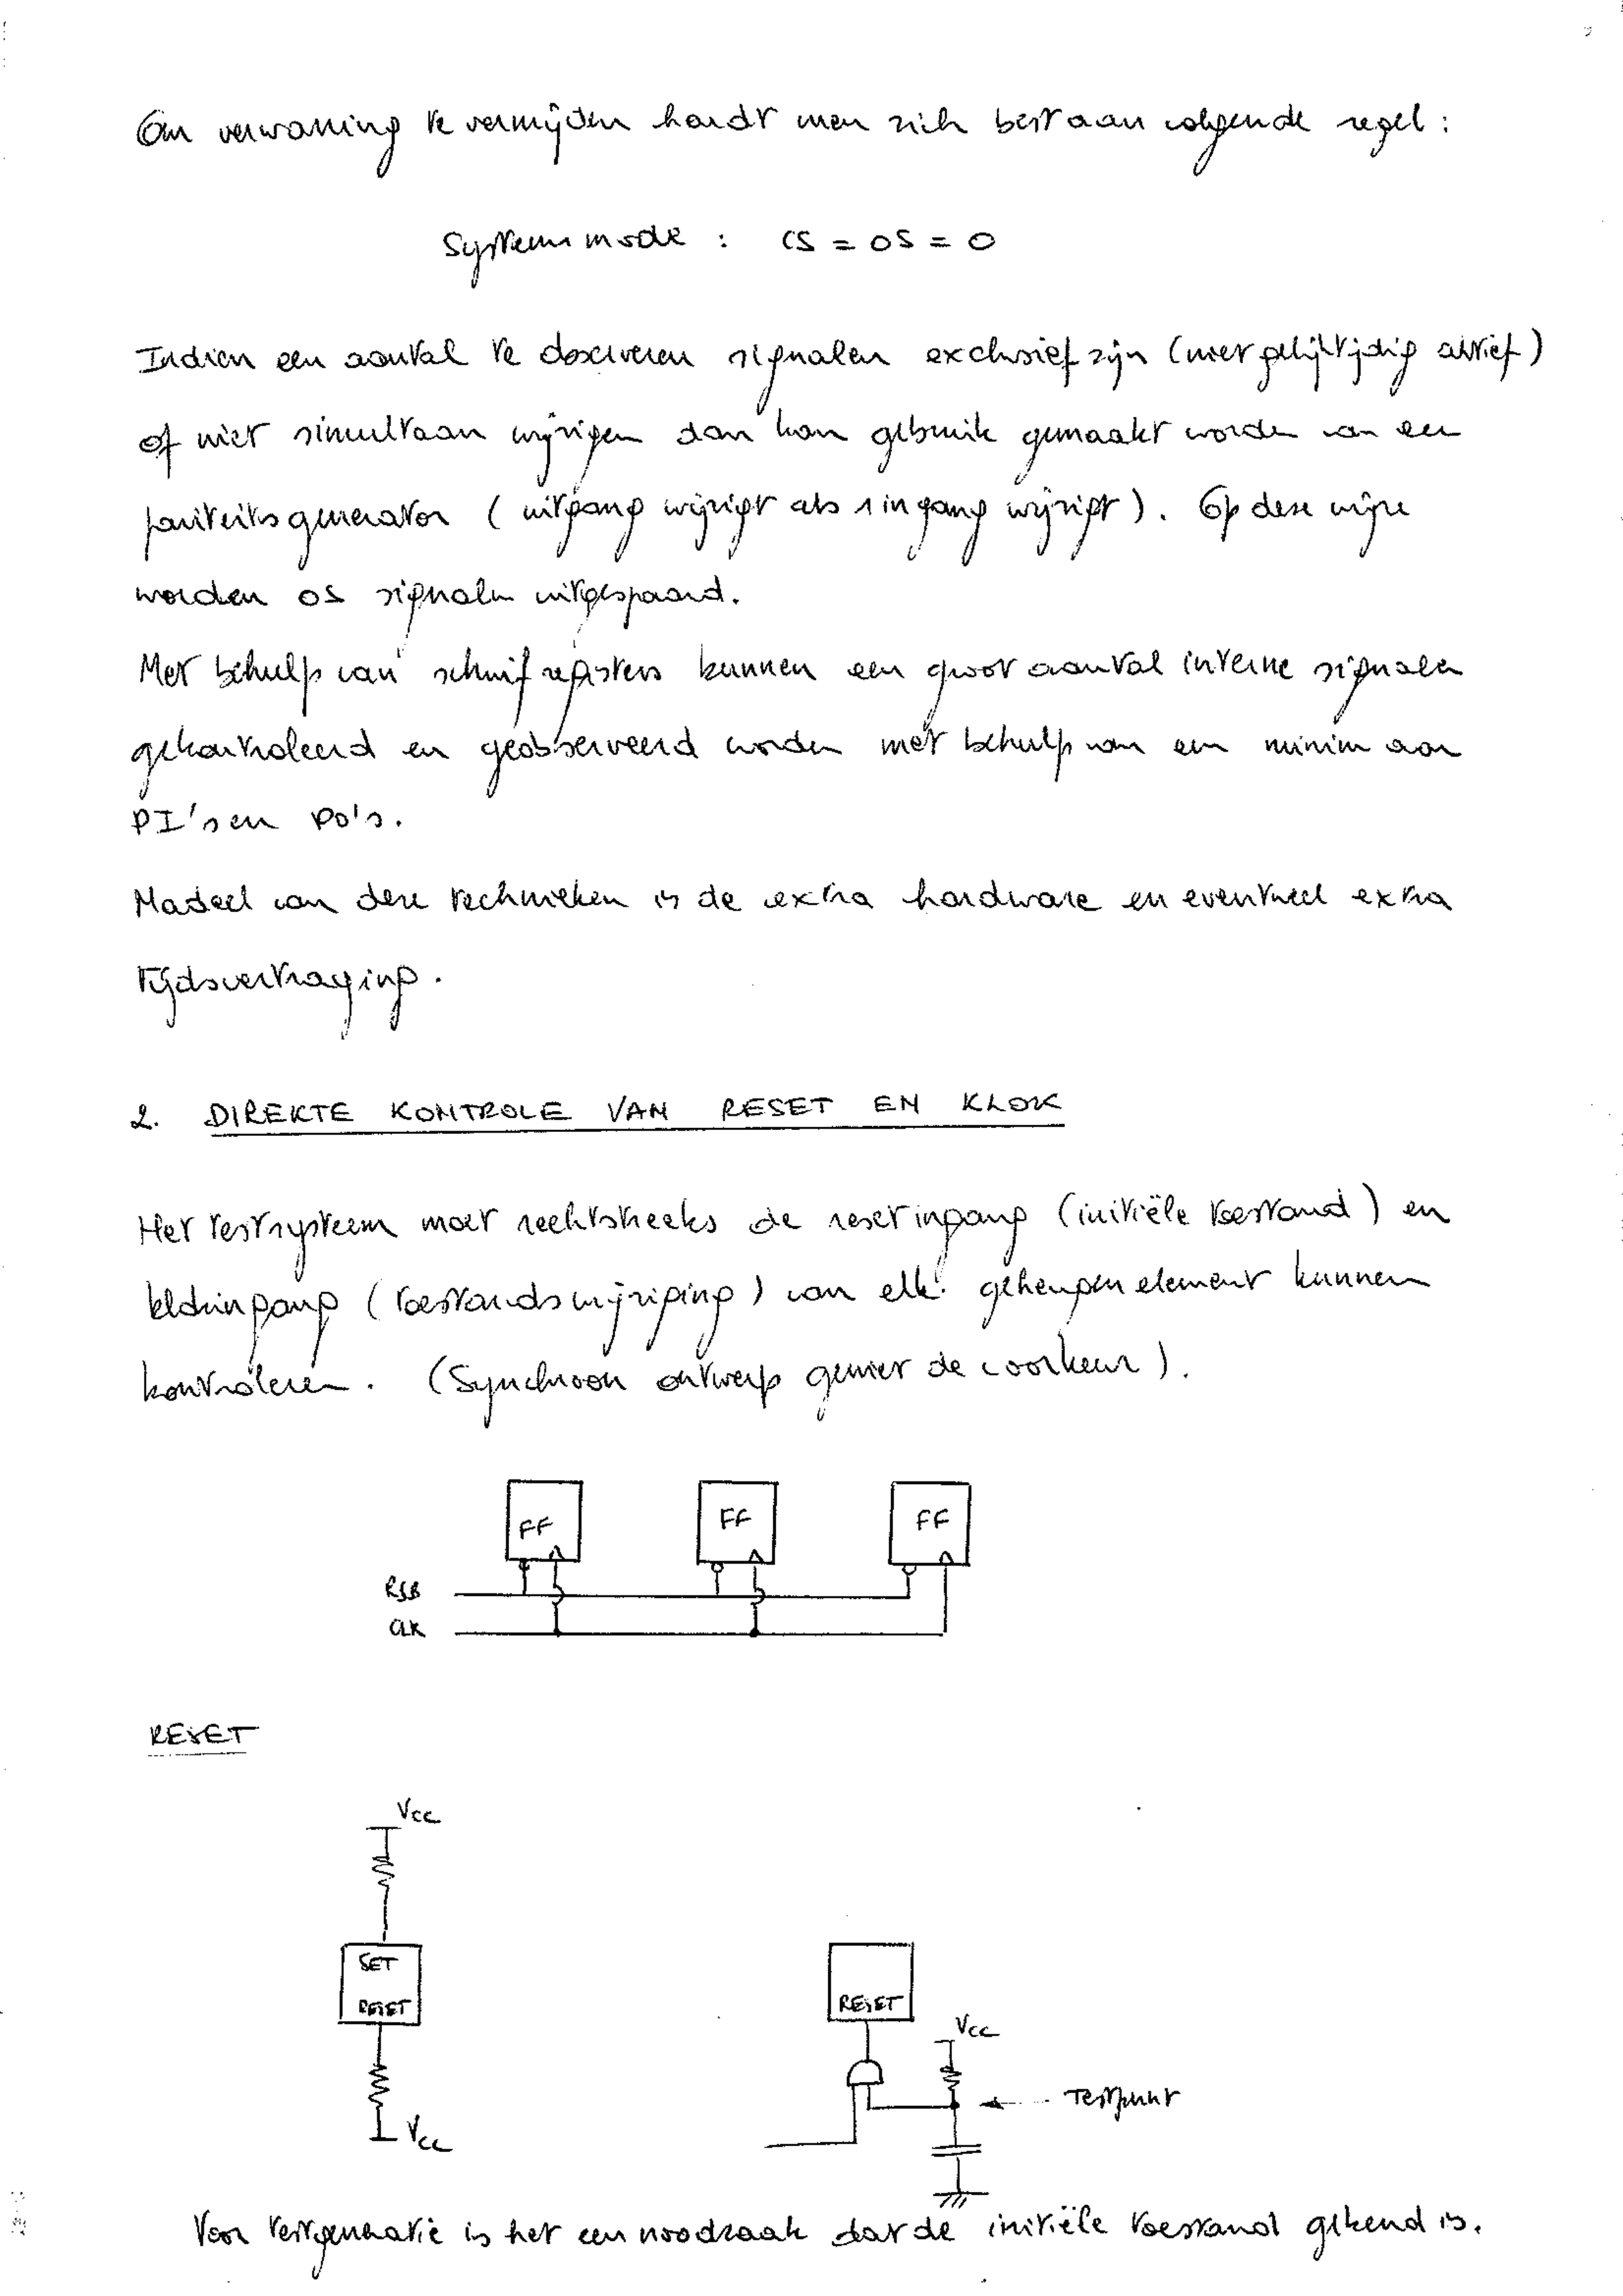 Om verwarring te vermijden houdt men zich best aan volgende regel:
Systeem mode : CS = OS = 0
Indien een aantal te observeren signalen exclusief zijn (niet gelijktijdig aktief)
of niet simultaan wijzigen dan kan gebruik gemaakt worden van een
pariteitsgenerator (uitgang wijzigt als 1 ingang wijzigt). Op deze wijze
worden OS signalen uitgespaard.
Met behulp van schuifregisters kunnen een groot aantal interne signalen
gekontroleerd en geobserveerd worden met behulp van een minim aan
PI's en PO's.
Nadeel van deze technieken is de extra hardware en eventueel extra
tijdsvertraging.
2. DIREKTE KONTROLE VAN RESET EN KLOK
Het testsysteem moet rechtstreeks de reset ingang (initiële toestand) en
klokingang (toestandswijziging) van elk geheugen element kunnen
kontroleren. (Synchroon ontwerp geniet de voorkeur).
FF FF FF
RSB
CLK
RESET
Vcc
SET
RESET
Vcc
RESET
Vcc
Testpunt
Voor testgeneratie is het een noodzaak dat de initiële toestand gekend is.